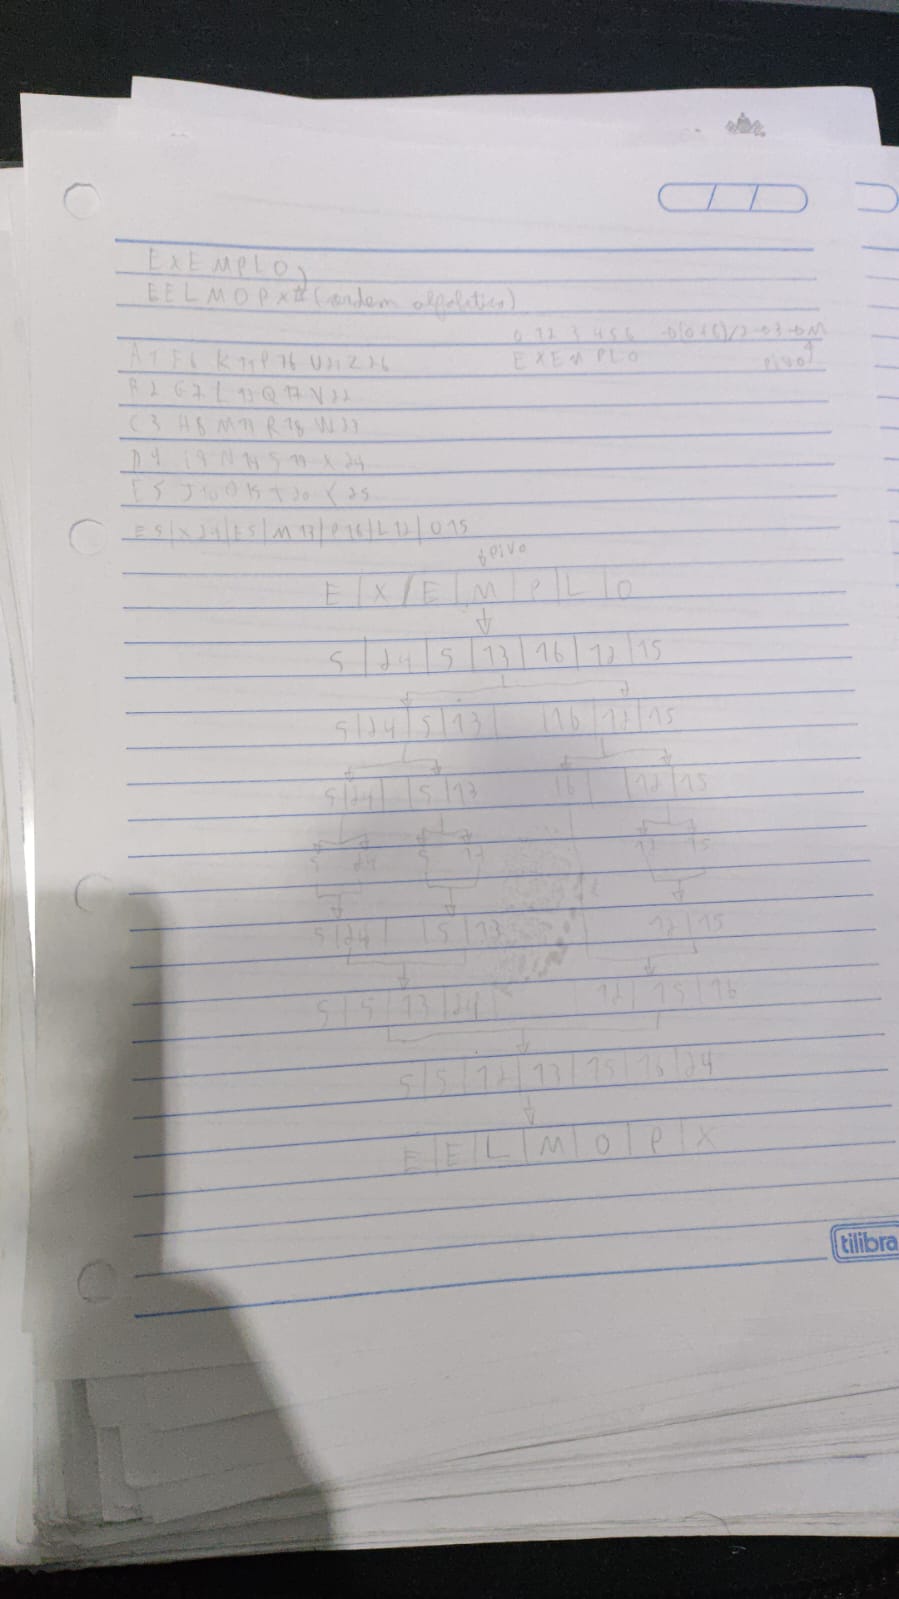 EXEMPLO
EELMOPX (ordem alfabetica)
0 1 2 3 4 5 6 →(0+6)/2→3→M
EXEMPLO pivo
A1 F6 K11 P16 U21 Z26
B2 G7 L12 Q17 V22
C3 H8 M13 R18 W23
D4 i9 N14 S19 X24
E5 J10 O15 T20 Y25
E5|X24|E5|M13|P16|L12|O15
pivo
E|X|E|M|P|L|O
5|24|5|13|16|12|15
5|24|5|13| |16|12|15
5|24| |5|13 16| |12|15
5 24 5 13 12 15
5|24| |5|13 12|15
5|5|13|24| |12|15|16
5|5|12|13|15|16|24
E|E|L|M|O|P|X
tilibra